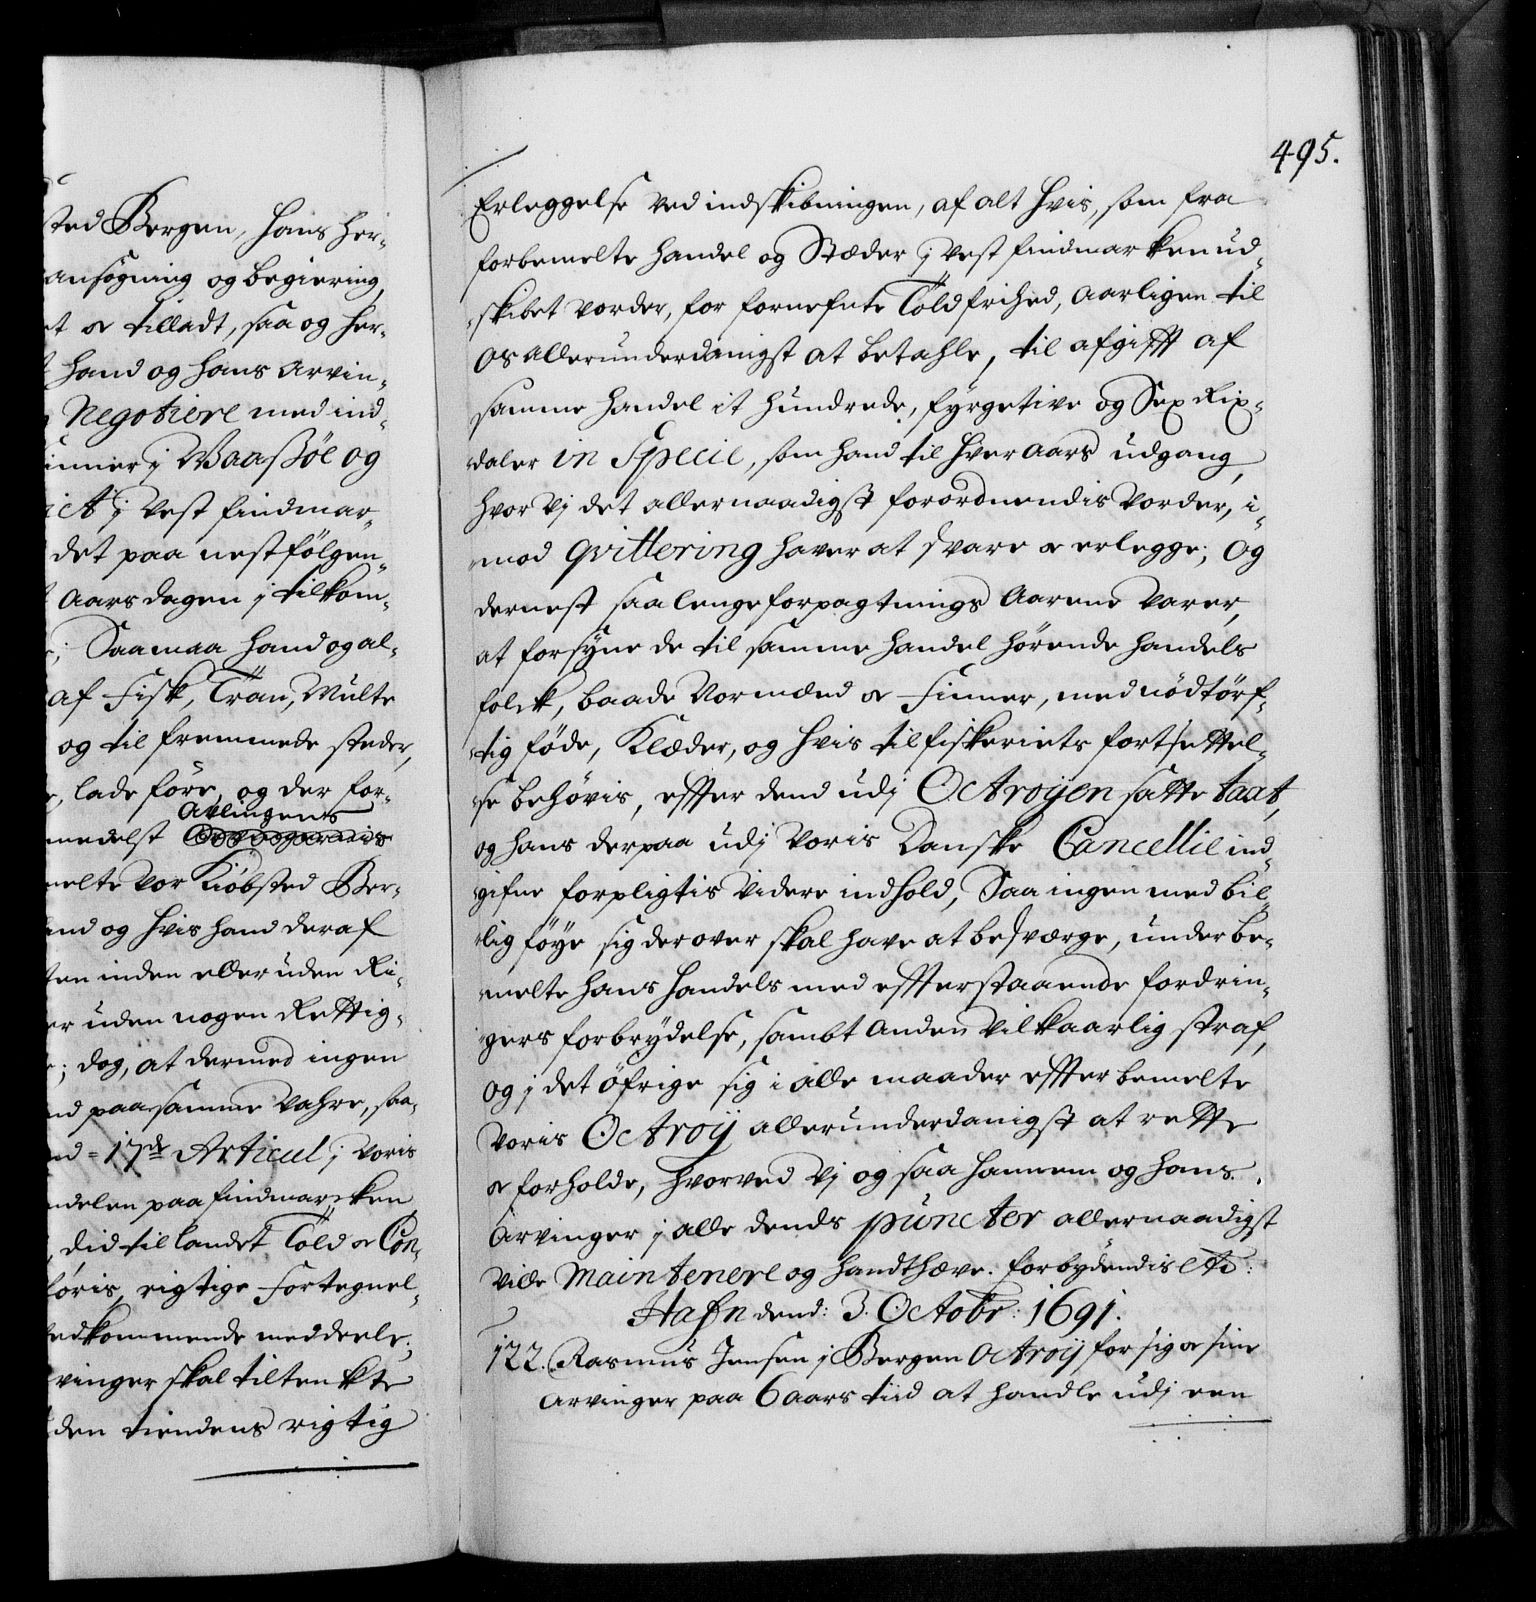 sted Bergen, hans her-
ansøgning og begiering,
et & tilladt, saa og her-
hand og hans Arvin-
Negotiere med ind-
inner j Maassøe og
ict j Vest findmar-
det paa nestfølgen-
Aarsdagen j tilkom-
; Saa maa hand og al-
af Fisk, Tran, Multe
og til fremmede steder,
, lade føre, og der for-
Avlingens
medelst
melte vor Kiøbsted Ber-
and og hvis hand deraf
ten inden eller uden Ri-
er uden nogen Rettig-
; dog, at dermed ingen
nd paa samme vahre, saa-
nd = 17de Articul j voris
ndelen paa findmarcken
, did til landet Told & Con-
føris, rigtige Fortegnel-
vedkommende meddeele;
vinger skal tiltenkte
den tiendens rigtig
495.
Erleggelse ved indskibningen, af alt hvis, som fra
forbemelte handel og Stæder j Vest findmarken ud-
skibet vorder, for fornefnte Toldfrihed, aarligen til
Os allerunderdanigst at betahle, til afgifft af
samme handel it hundrede, fyrgetive og Sex Rix-
daler in Specie, som hand til hver aars udgang,
hvor Vj det allernaadigst forordnendis vorder, i-
mod qvittering haver at svare & erlegge; Og
dernest saa lenge forpagtnings Aarene varer,
at forsyne de til samme handel hørende handels
folck, baade Normænd & Finner, med nødtørf-
tig føde, Klæder, og hvis til fiskeriets fortsettel-
se behøvis, effter dend udj Octroyen satte taxt,
og hans derpaa udj Voris Danske Cancellie ind-
gifne forpligtis videre indhold, Saa ingen med bil-
lig føye sig derover skal have at besværge, under be-
melte hans handels med effterstaaende fordrin-
gers forbrydelse, sambt anden vilkaarlig straf,
og j det øfrige sig i alle maader effter bemelte
Voris Octroij allerunderdanigst at rette
& forholde, hvorved Vj og saa hannem og hans
Arvinger j alle dends puncter allernaadigst
ville maintenere og handthæve. forbydendis etc:
Hafn dend: 3. Octobr: 1691.
122. Rasmus Jensen j Bergen Octroij for sig & sine
Arvinger paa 6 aars tiid at handle udj een